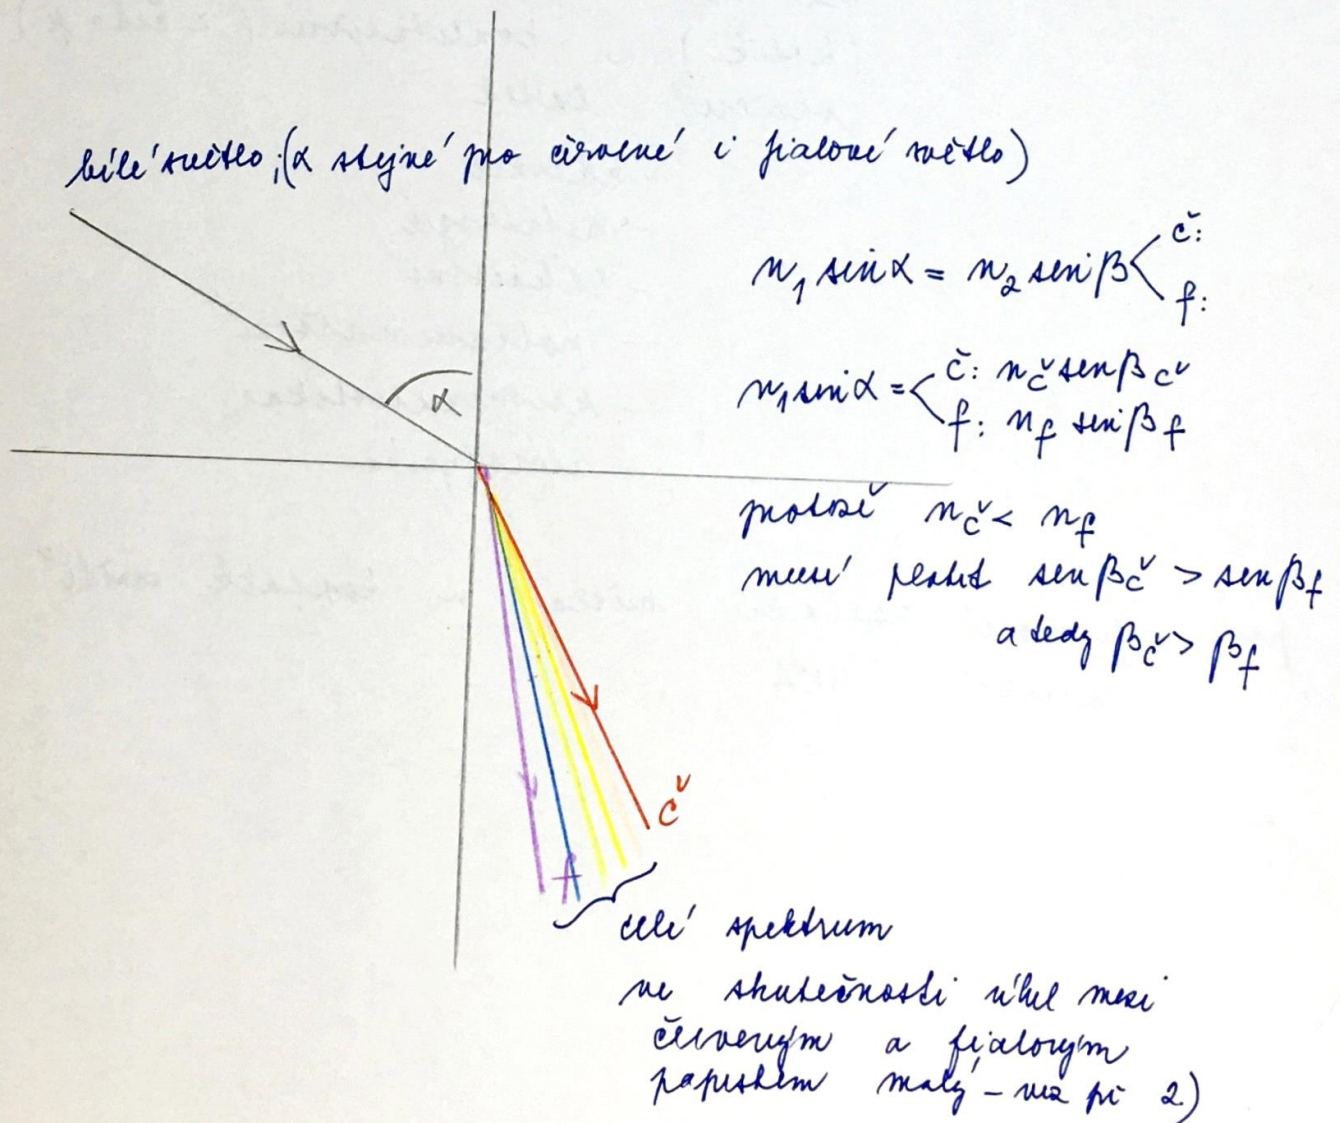 bílé světlo; (α stejné pro červené i fialové světlo)
α
n₁ sin α = n₂ sin β < č:
f:
n₁ sin α = < č: n_č sin β_č
f: n_f sin β_f
protože n_č < n_f
musí platit sin β_č > sin β_f
a tedy β_č > β_f
č
f
celé spektrum
ve skutečnosti úhel mezi
červeným a fialovým
paprskem malý - viz př 2)